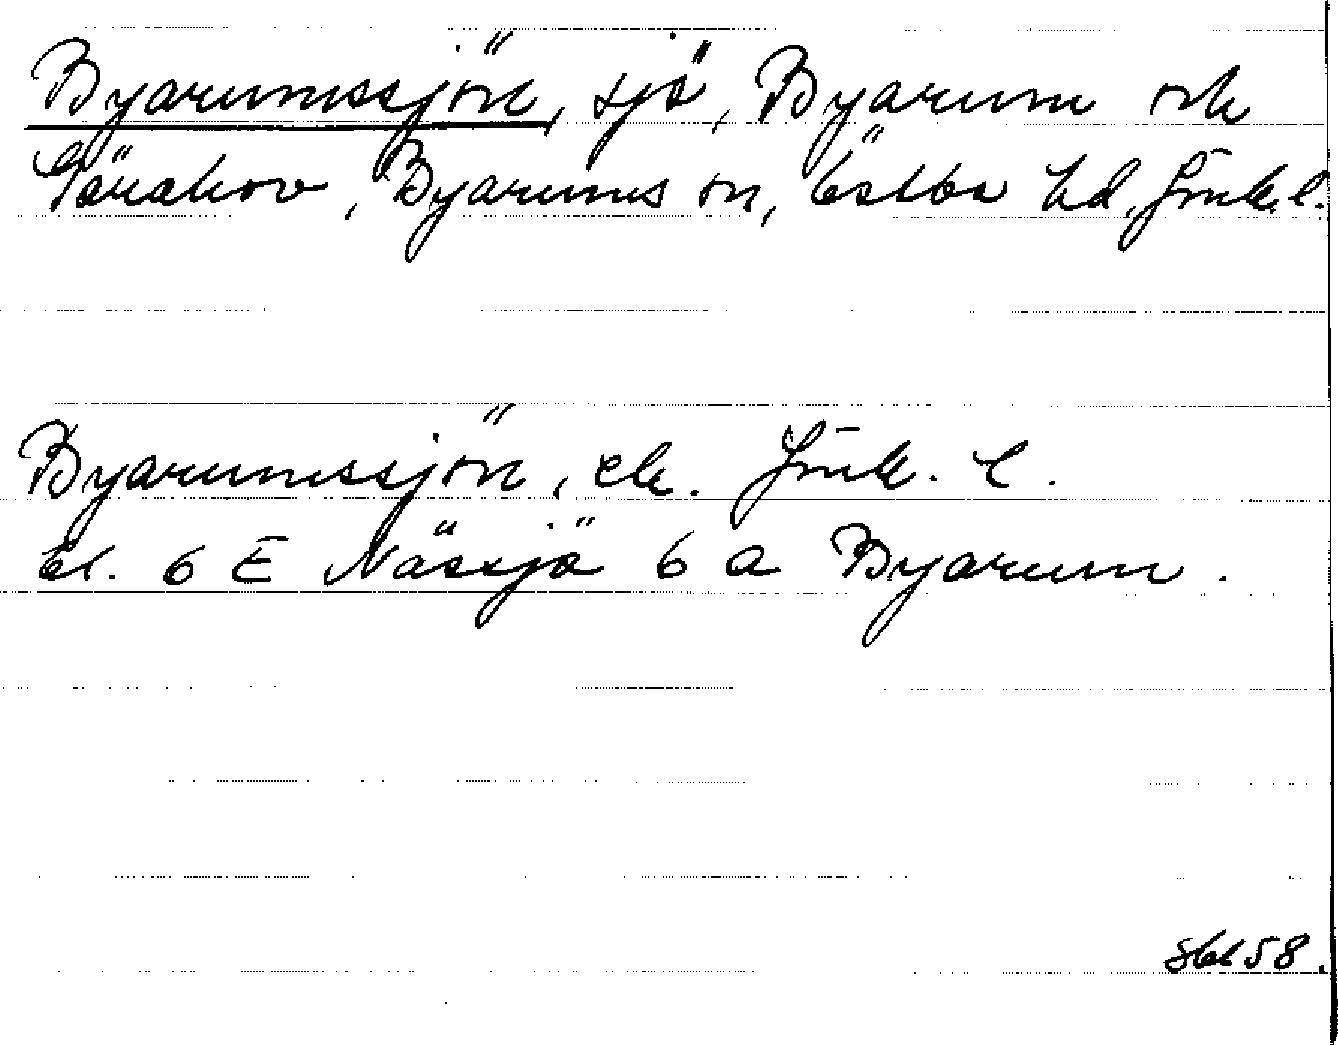 Byarumssjön, sjö, Byarum och
Tärahov, Byarums sn, Östbo hd, Jönk. l.
Byarumssjön, ek. Jönk. l.
bl. 6 E Nässjö 6 a Byarum.
58.